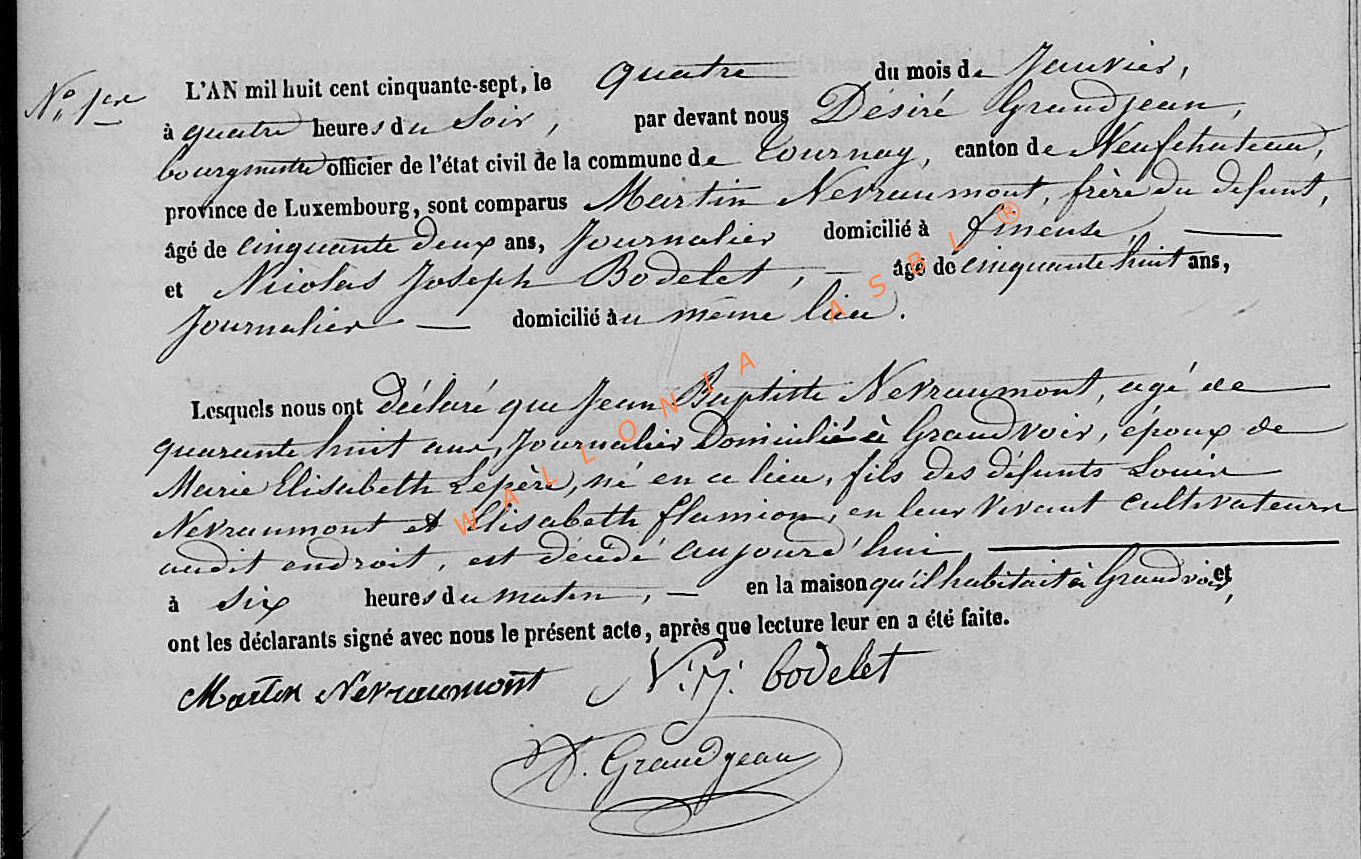 N° 1er
L'AN mil huit cent cinquante-sept, le quatre du mois de Janvier,
à quatre heures du Soir, par devant nous Désiré Grandjean,
bourgmestre officier de l'état civil de la commune de Tournay, canton de Neufchateau,
province de Luxembourg, sont comparus Martin Nevraumont, frère du défunt,
âgé de cinquante deux ans, Journalier domicilié à fineuse,
et Nicolas Joseph Bodelet, âgé de cinquante huit ans,
Journalier domicilié au même lieu.
Lesquels nous ont déclaré que Jean Baptiste Nevraumont, agé de
quarante huit ans, Journalier Domicilié à Grandvoir, époux de
Marie Elisabeth Lepère, né en ce lieu, fils des défunts Louis
Nevraumont et Elisabeth flamion, en leur vivant cultivateurs
audit endroit, est décédé aujourd'hui,
à six heures du matin, en la maison qu'il habitait à Grandvoir, et
ont les déclarants signé avec nous le présent acte, après que lecture leur en a été faite.
Martin Nevraumont N. J. bodelet
D. Grandjean
WALLONIA ASBL ®